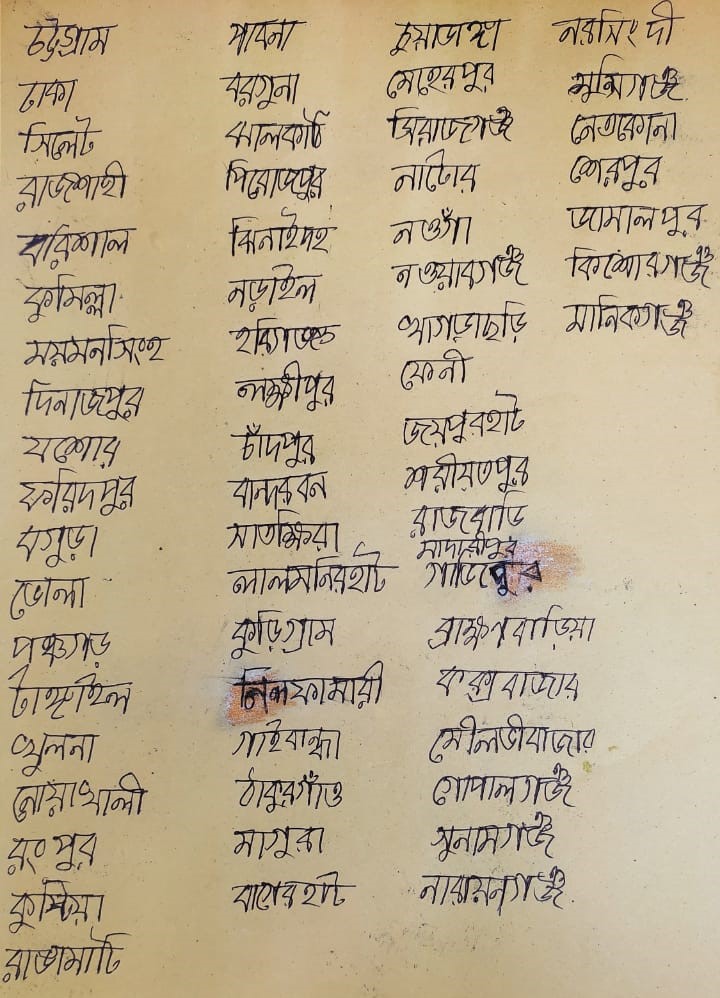 চট্টগ্রাম
ঢাকা
সিলেট
রাজশাহী
বরিশাল
কুমিল্লা
ময়মনসিংহ
দিনাজপুর
যশোর
ফরিদপুর
বগুড়া
ভোলা
পঞ্চগড়
টাঙ্গাইল
খুলনা
নোয়াখালী
রংপুর
কুষ্টিয়া
রাঙামাটি
পাবনা
বরগুনা
ঝালকাঠি
পিরোজপুর
ঝিনাইদহ
নড়াইল
হবিগঞ্জ
লক্ষ্মীপুর
চাঁদপুর
বান্দরবন
সাতক্ষিরা
লালমনিরহাট
কুড়িগ্রাম
নিলফামারী
গাইবান্ধা
ঠাকুরগাঁও
মাগুরা
বাগেরহাট
চুয়াডাঙ্গা
মেহেরপুর
সিরাজগঞ্জ
নাটোর
নওগাঁ
নওয়াবগঞ্জ
খাগড়াছড়ি
ফেনী
জয়পুরহাট
শরীয়তপুর
রাজবাড়ি
মাদারীপুর
গাজিপুর
ব্রাহ্মণবাড়িয়া
কক্সবাজার
মৌলভীবাজার
গোপালগঞ্জ
সুনামগঞ্জ
নারায়নগঞ্জ
নরসিংদী
মুন্সিগঞ্জ
নেত্রকোনা
শেরপুর
জামালপুর
কিশোরগঞ্জ
মানিকগঞ্জ